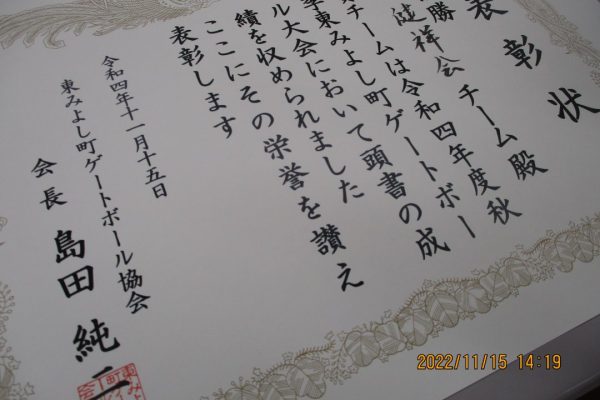 表彰状
勝 健祥会チーム殿
チームは令和四年度秋
季東みよし町ゲートボー
ル大会において頭書の成
績を収められました
ここにその栄誉を讃え
表彰します
令和四年十一月十五日
東みよし町ゲートボール協会
会長 島田 純二
2022/11/15 14:19